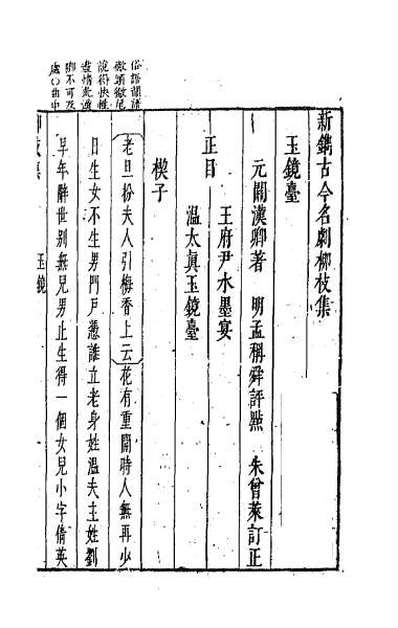 新鐫古今名劇柳枝集
玉鏡臺
元關漢卿著 明孟稱舜評點 朱曾萊訂正
正目
王府尹水墨宴
溫太眞玉鏡臺
楔子
老旦扮夫人引梅香上云花有重開時人無再少
日生女不生男門戶憑誰立老身姓溫夫主姓劉
早年辭世別無兒男止生得一個女兒小字倩英
玉鏡
俗語韻語
徹頭徹尾
說得快性
盡情此漢
卿不可及
處○曲中